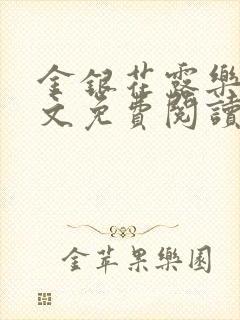 金銀花露樂
文免費閱讀
金苹果樂園